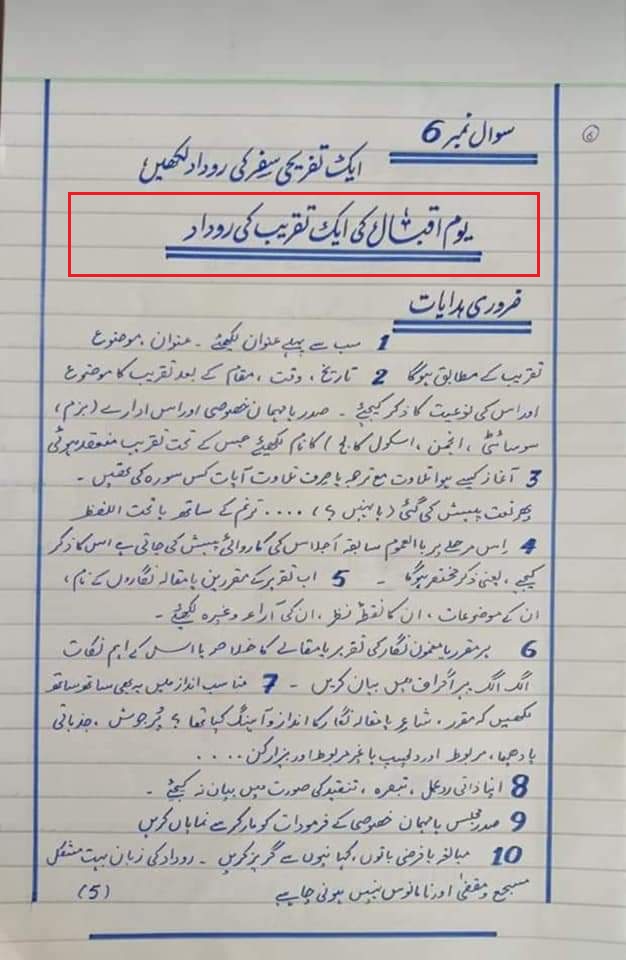 سوال نمبر 6
6
ایک تفریحی سفر کی روداد لکھیں
یوم اقبالؒ کی ایک تقریب کی روداد
ضروری ہدایات
1 سب سے پہلے عنوان لکھئے ۔ عنوان ، موضوع
تقریب کے مطابق ہوگا 2 تاریخ ، وقت ، مقام کے بعد تقریب کا موضوع
اور اس کی نوعیت کا ذکر کیجئے ۔ صدر یا مہمان خصوصی اور اس ادارے (بزم ،
سوسائٹی ، انجمن ، اسکول کالج) کا نام لکھیئے جس کے تحت تقریب منعقد ہوئی
3 آغاز کیسے ہوا تلاوت مع ترجمہ یا صرف تلاوت آیات کس سورہ کی تھیں ۔
پھر نعت پیش کی گئی (یا نہیں ؟) .... ترنم کے ساتھ یا تحت اللفظ
4 اِس مرحلے پر با العموم سابقہ اجلاس کی کاروائی پیش کی جاتی ہے اس کا ذکر
کیجیے ، یعنی ذکر مختصر ہوگا ۔ 5 اب تقریر کے مقررین یا مقالہ نگاروں کے نام ،
ان کے موضوعات ، ان کا نقطہ نظر ، ان کی آراء وغیرہ لکھیئے ۔
6 ہر مقرر یا مضمون نگار کی تقریر یا مقالے کا خلاصہ یا اس کے اہم نکات
الگ الگ پیراگراف میں بیان کریں ۔ 7 مناسب انداز میں یہ بھی ساتھ ساتھ
لکھیں کہ مقرر ، شاعر یا مقالہ نگار کا انداز و آہنگ کیا تھا ؟ پُرجوش ، جذباتی
یا دھیما ، مربوط اور دلچسپ یا غیر مربوط اور بیزار کن ....
8 اپنا ذاتی ردعمل ، تبصرہ ، تنقید کی صورت میں بیان نہ کیجئے ۔
9 صدر مجلس یا مہمان خصوصی کے فرمودات کو مارکر سے نمایاں کریں
10 مبالغہ یا فرضی باتوں ، کہانیوں سے گریز کریں ۔ روداد کی زبان بہت مشکل
مسجع و مقفیٰ اور نامانوس نہیں ہونی چاہیے (5)